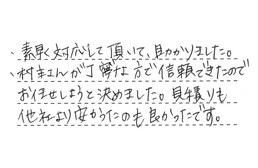 ・素早く対応して頂いて、助かりました。
・村さんが丁寧な方で信頼できたので
お任せしようと決めました。見積りも
他社より安かったのも良かったです。